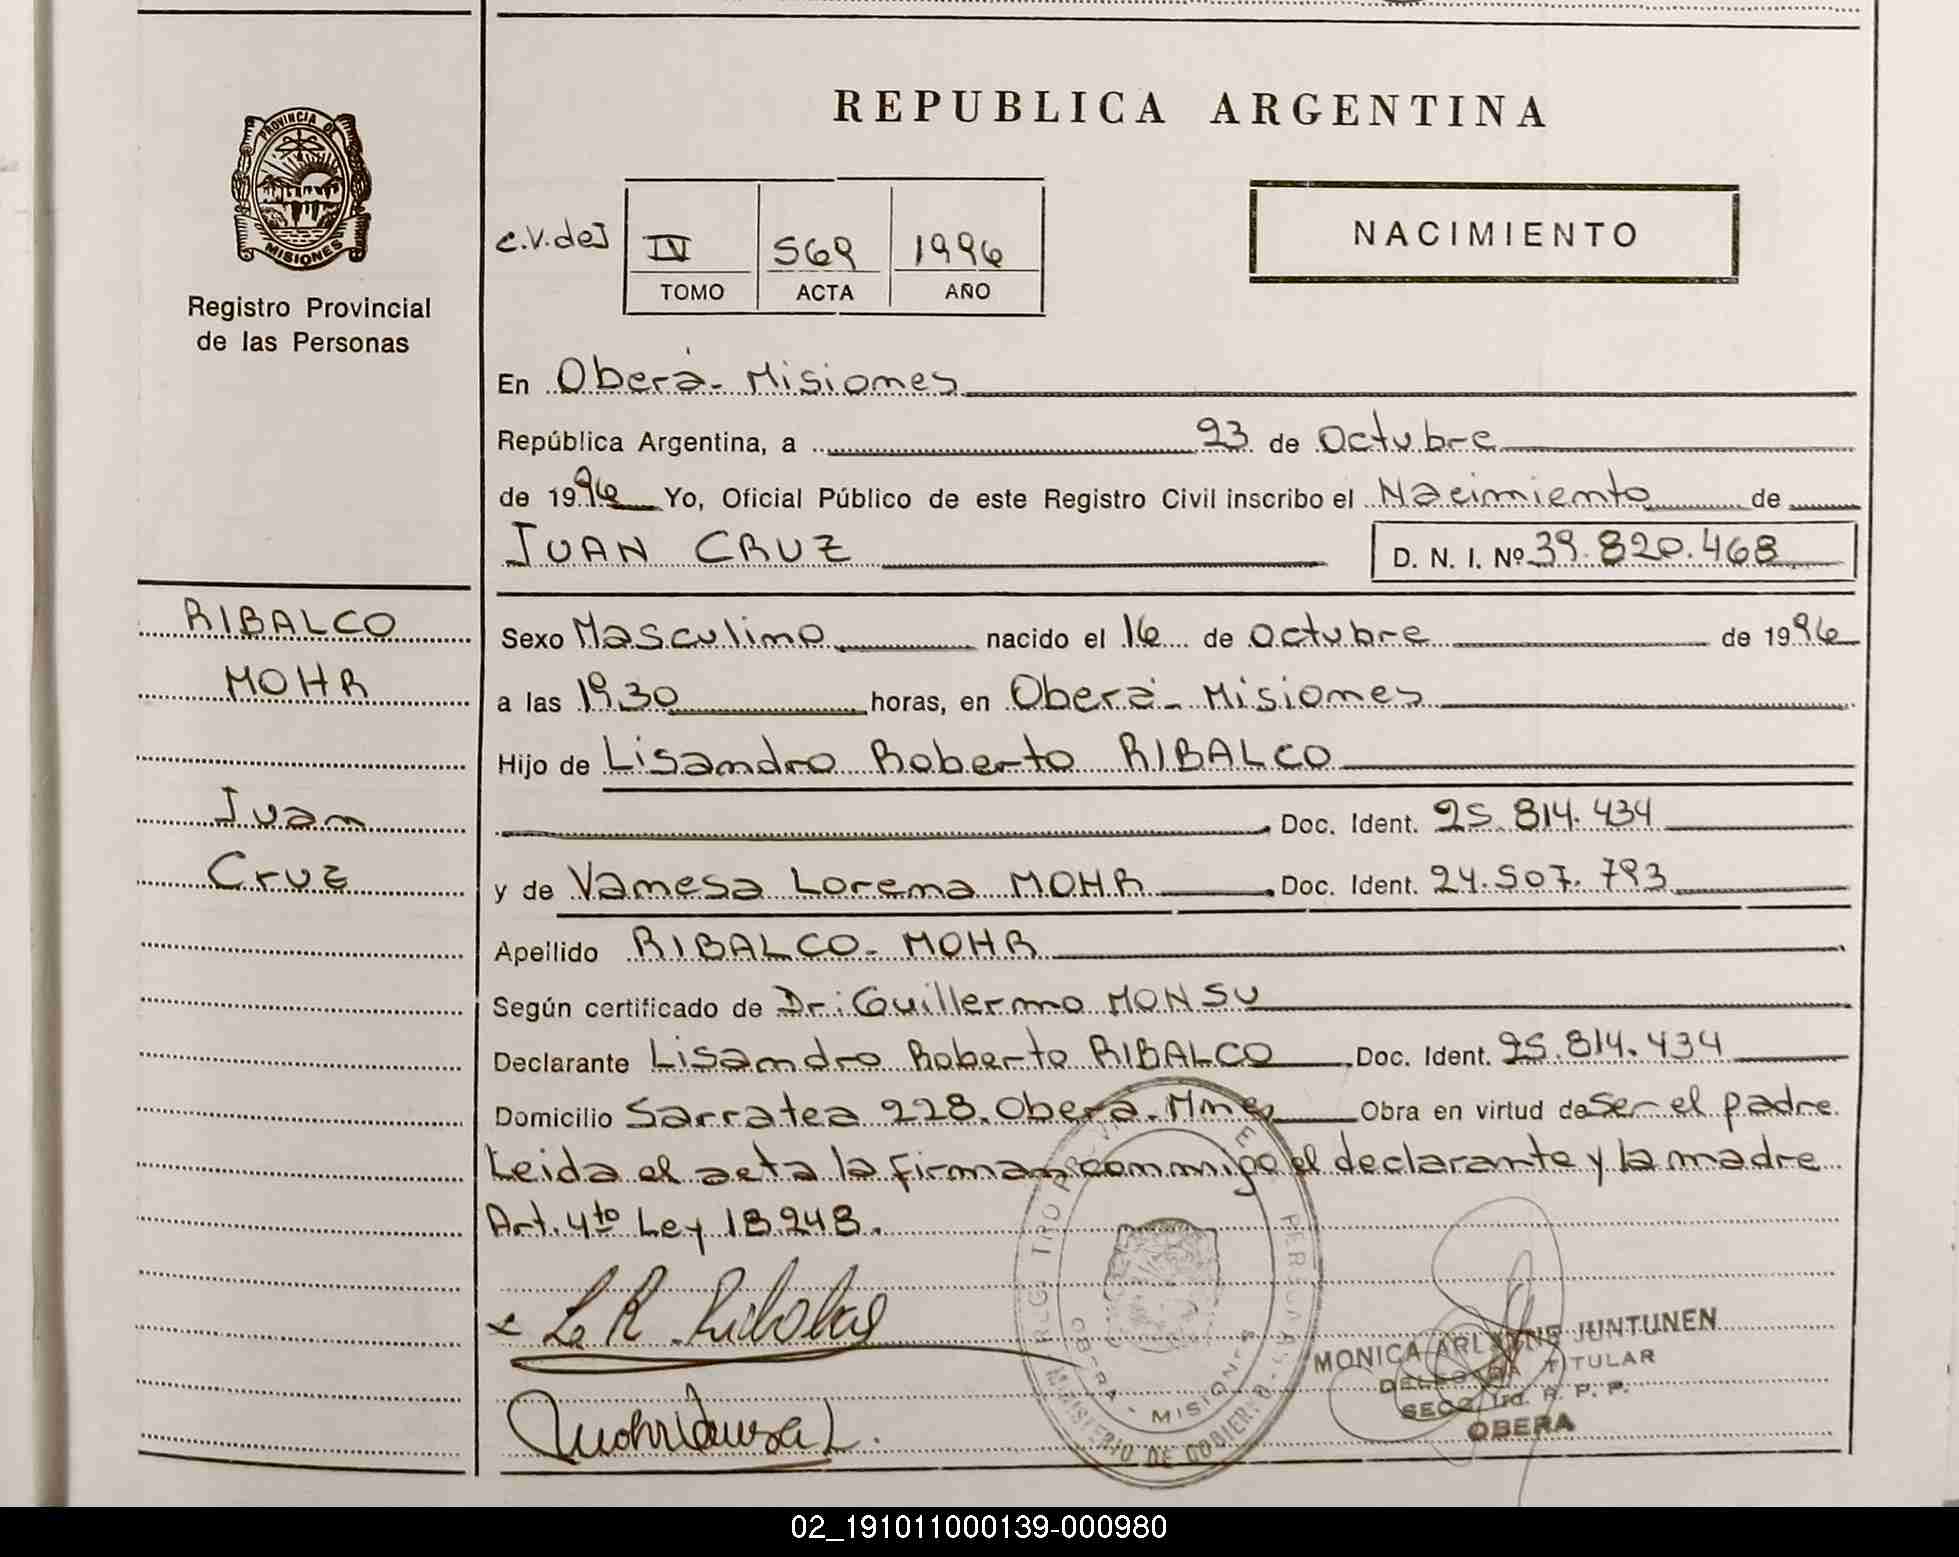 REPUBLICA ARGENTINA
PROVINCIA DE
MISIONES
Registro Provincial
de las Personas
C.V. de J
IV 569 1996
TOMO ACTA AÑO
NACIMIENTO
En Oberá - Misiones
República Argentina, a 23 de Octubre
de 1996 Yo, Oficial Público de este Registro Civil inscribo el Nacimiento de
JUAN CRUZ D. N. I. Nº 39.820.468
RIBALCO
MOHR
Juan
Cruz
Sexo Masculino nacido el 16 de Octubre de 1996
a las 19.30 horas, en Oberá - Misiones
Hijo de Lisandro Roberto RIBALCO
Doc. Ident. 25.814.434
y de Vanesa Lorena MOHR Doc. Ident. 24.507.793
Apellido RIBALCO - MOHR
Según certificado de Dr: Guillermo MONSU
Declarante Lisandro Roberto RIBALCO Doc. Ident. 25.814.434
Domicilio Sarratea 228. Oberá. Mnes Obra en virtud de ser el padre
Leida el acta la firman conmigo el declarante y la madre
Art. 4to Ley 18.248.
OBERA - MISIONES
MINISTERIO DE GOBIERNO
MONICA ARLYNE JUNTUNEN
DELEGADA TITULAR
SECC. 1ra. R. P. P.
OBERA
02_191011000139-000980